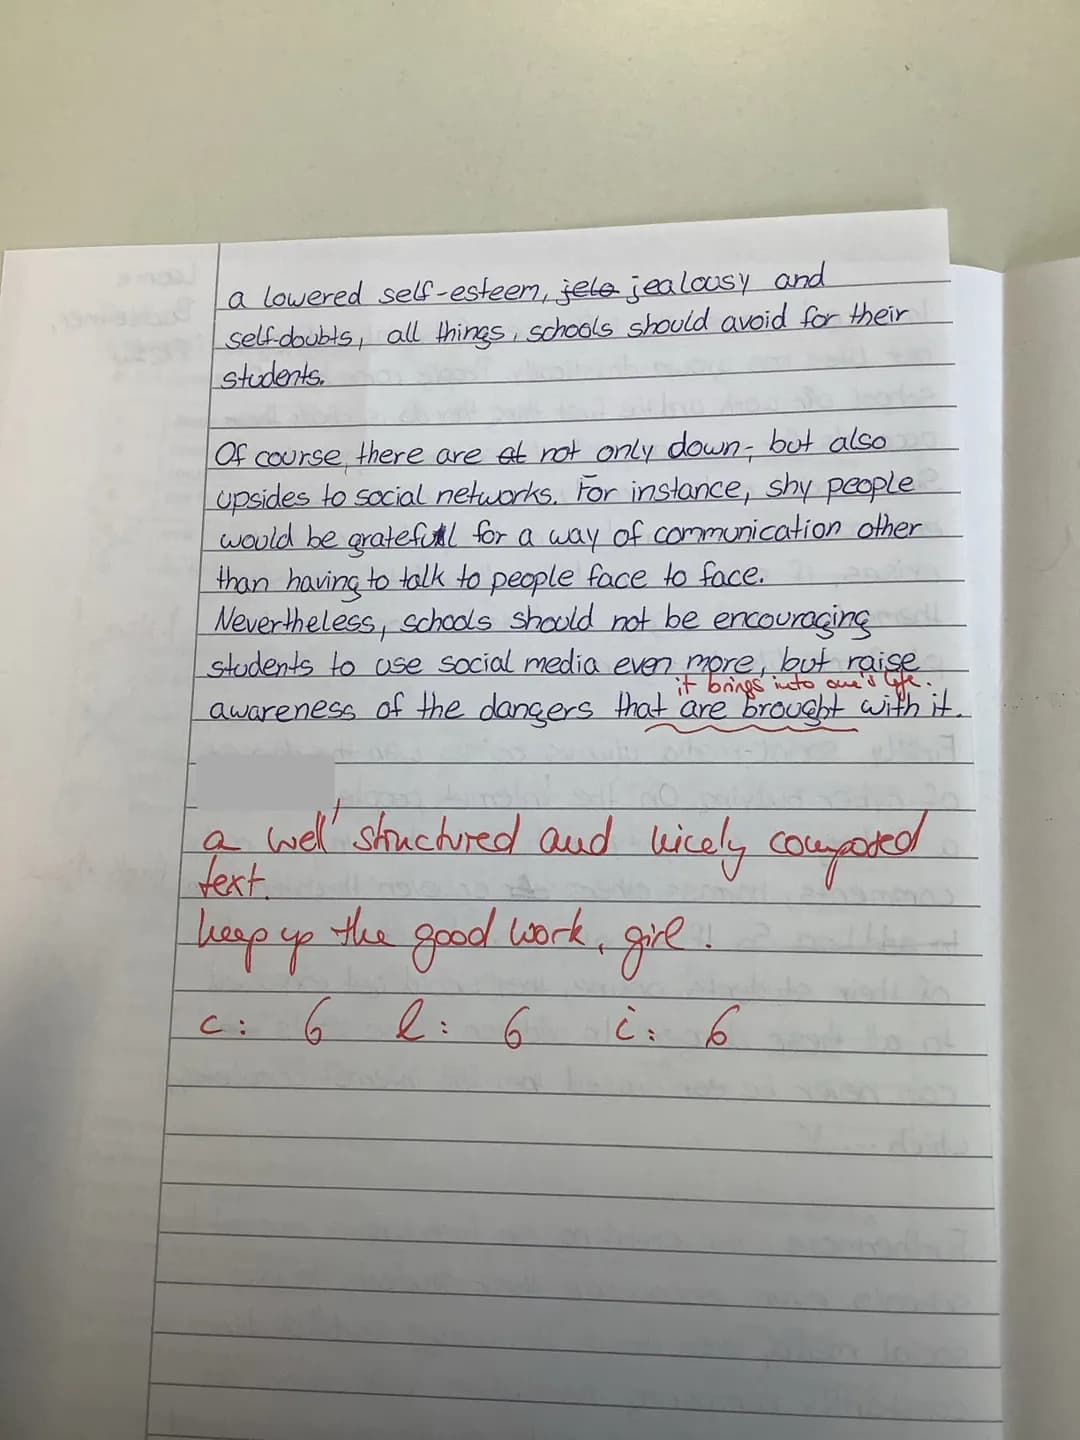 a lowered self-esteem, jelo jealousy and
self-doubts, all things, schools should avoid for their
students.
Of course, there are at not only down- but also
upsides to social networks. For instance, shy people
would be gratefull for a way of communication other
than having to talk to people face to face.
Nevertheless, schools should not be encouraging
students to use social media even more, but raise
it brings into one's life.
awareness of the dangers that are brought with it.
a well structured and nicely composed
text.
keep up the good work, girl.
c: 6 l: 6 i: 6